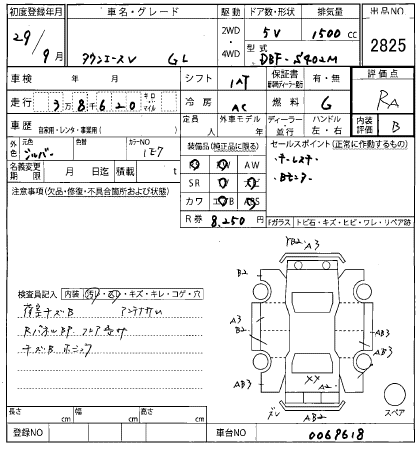 初度登録年月 車名・グレード 駆動 ドア数・形状 排気量 出品NO
29/9月 タウンエースV GL 2WD・4WD 5V 1500cc 2825
型式 DBF-S402M
車検 年 月 シフト IAT 保証書 有・無 評価点
走行 3万8千620 キロ マイル 冷房 AC 燃料 G RA
車歴 自家用・レンタ・事業用( ) 定員 人 外車モデル 年 ディーラー 並行 ハンドル 左・右 内装評価 B
外色 元色 シルバー 色替 カラーNO 1E7
装備品(純正品に限る) セールスポイント(正常に作動するもの)
名義変更期限 月 日迄 積載 t
AW
SR
カワ
R券 8,250円
・Bモニター
注意事項(欠品・修復・不具合箇所および状態)
Fガラス トビ石・キズ・ヒビ・ワレ・リペア跡
検査員記入 内装 ・キズ・キレ・コゲ・穴
荷室キズB アンテナサム
RパネルBP
チズB
A3
B2 B2
A3
B2
A3
A3
AB3 AB3
XX
AB2
スペア
長さ cm 幅 cm 高さ cm
登録NO 車台NO 0069618